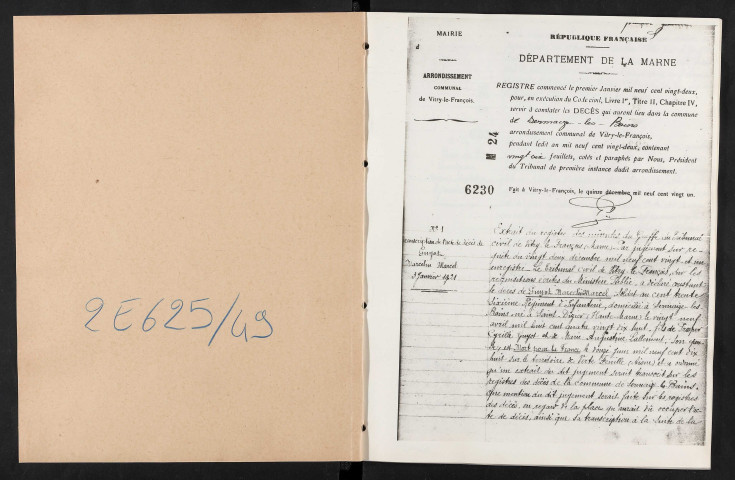 2E625/49
MAIRIE
d
ARRONDISSEMENT
COMMUNAL
de Vitry-le-François.
RÉPUBLIQUE FRANÇAISE
DÉPARTEMENT DE LA MARNE
REGISTRE commencé le premier Janvier mil neuf cent vingt-deux,
pour, en exécution du Code civil, Livre Ier, Titre II, Chapitre IV,
servir à constater les DÉCÈS qui auront lieu dans la commune
de Sermaize-les-Bains
arrondissement communal de Vitry-le-François,
pendant ledit an mil neuf cent vingt-deux, contenant
vingt six feuillets, cotés et paraphés par Nous, Président
du Tribunal de première instance dudit arrondissement.
24
6230
Fait à Vitry-le-François, le quinze décembre mil neuf cent vingt un.
No 1
Transcription de l'acte de décès de
Guyot
Marcelin Marcel
3 Janvier 1921
Extrait du registre des minutes du Greffe du Tribunal
civil de Vitry le François (Marne). Par jugement sur re-
quête du vingt deux décembre mil neuf cent vingt et un
enregistré. Le Tribunal civil de Vitry le François, sur les
réquisitions écrites du Ministère Public, a déclaré constant
le décès de Guyot Marcelin Marcel, Soldat au cent trente
sixième Régiment d'Infanterie, domicilié à Sermaize-les-
Bains, né à Saint Dizier (Haute Marne) le vingt neuf
avril mil huit cent quatre vingt dix huit, fils de Prosper
Cyrille Guyot et de Marie Augustine Lallement.
est Mort pour la France le douze juin mil neuf cent dix
huit sur le territoire de (Aisne) et a ordonné
qu'un extrait du dit jugement serait transcrit sur les
registres des décès de la commune de Sermaize les Bains,
que mention du dit jugement serait faite sur les registres
des décès, en regard de la place qu'aurait dû occuper l'ac-
te de décès, ainsi que sa transcription à la suite de la